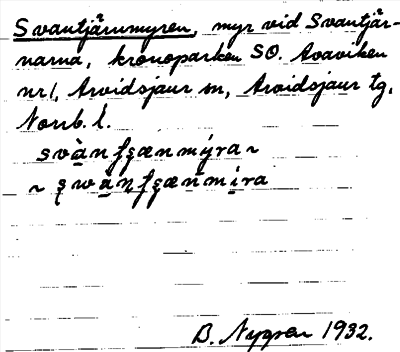 Svantjärnmyren, myr vid Svantjär-
narna, kronoparken SO. Avaviken
nr 1, Arvidsjaur sn, Arvidsjaur tg,
Norrb. l.
svànʃʂænmýra ~
~ ʂwànʃʂænmira
B. Nygren 1932.